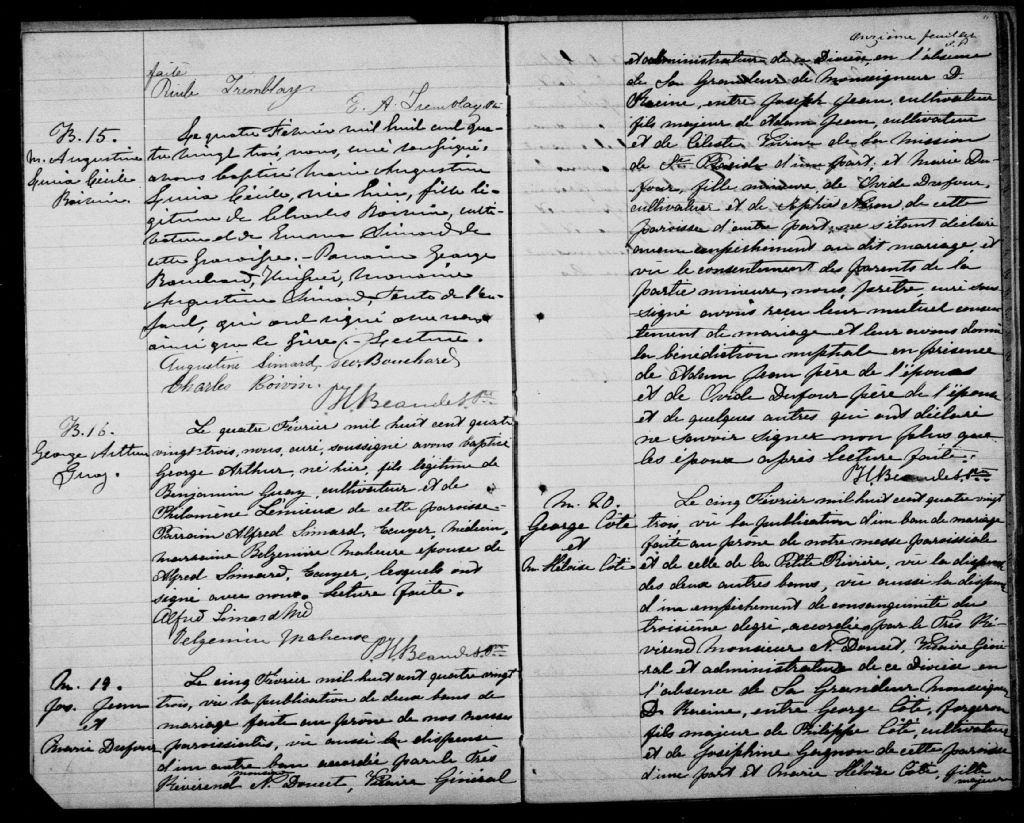 faite
Rude Tremblay
E. A. Tremblay Ptr
B. 15.
M. Augustine
Cécile
Boivin.
Le quatre Février mil huit cent qua-
tre vingt trois, nous, curé soussigné,
avons baptisé Marie Augustine
Cécile, née hier, fille lé-
gitime de Charles Boivin, culti-
vateur et de Emma Simard de
cette paroisse. - Parrain George
Bouchard, marraine
Augustine Simard, tante de l'en-
fant, qui ont signé avec nous
ainsi que le père. - Lecture.
Augustine Simard, Geo. Bouchard
Charles Boivin.
Beaudet Ptre
B. 16.
George Arthur
Guay.
Le quatre Février mil huit cent quatre
vingt trois, nous, curé, soussigné avons baptisé
George Arthur, né hier, fils légitime de
Benjamin Guay, cultivateur et de
Philomène Lemieux de cette paroisse -
Parrain Alfred Simard, Ecuyer, médecin,
marraine Belzemire Maheuse épouse de
Alfred Simard, Ecuyer, lesquels ont
signé avec nous. Lecture faite.
Alfred Simard Md
Maheuse
Beaudet Ptre
M. 19.
Jos. Jean
et
Marie Dufour
Le cinq Février mil huit cent quatre vingt
trois, vu la publication de deux bans de
mariage faite au prône de nos messes
paroissiales, vu aussi la dispense
d'un autre ban accordée par le Très
Révérend monsieur N. Doucet, Vicaire Général
onzième feuillet
et administrateur de ce Diocèse, en l'absence
de Sa Grandeur de Monseigneur D.
Racine, entre Joseph Jean, cultivateur
fils majeur de Adam Jean, cultivateur
et de Céleste de la mission
de Ste d'une part et Marie Du-
four, fille mineure de Ovide Dufour,
cultivateur et de Sophie de cette
paroisse d'autre part, ne s'étant déclaré
aucun empêchement au dit mariage et
vu le consentement des parents de la
partie mineure, nous, prêtre, curé sous-
signé avons reçu leur mutuel consen-
tement de mariage et leur avons donné
la bénédiction nuptiale en présence
de Adam Jean père de l'époux
et de Ovide Dufour père de l'épouse
et de quelques autres qui ont déclaré
ne savoir signer non plus que
les époux après lecture faite.
Beaudet Ptre
M. 20.
George Côté
et
M. Héloïse Côté
Le cinq Février mil huit cent quatre vingt
trois, vu la publication d'un ban de mariage
faite au prône de notre messe paroissiale
et de celle de la Petite Rivière, vu la dispense
des deux autres bans, vu aussi la dispense
d'un empêchement de consanguinité du
troisième degré, accordée par le Très Ré-
vérend monsieur N. Doucet, Vicaire Géné-
ral et administrateur de ce Diocèse en
l'absence de Sa Grandeur Monseigneur
D. Racine, entre George Côté, forgeron
fils majeur de Philippe Côté, cultivateur
et de Josephine Gagnon de cette paroisse
d'une part et Marie Héloïse Côté, fille
majeure